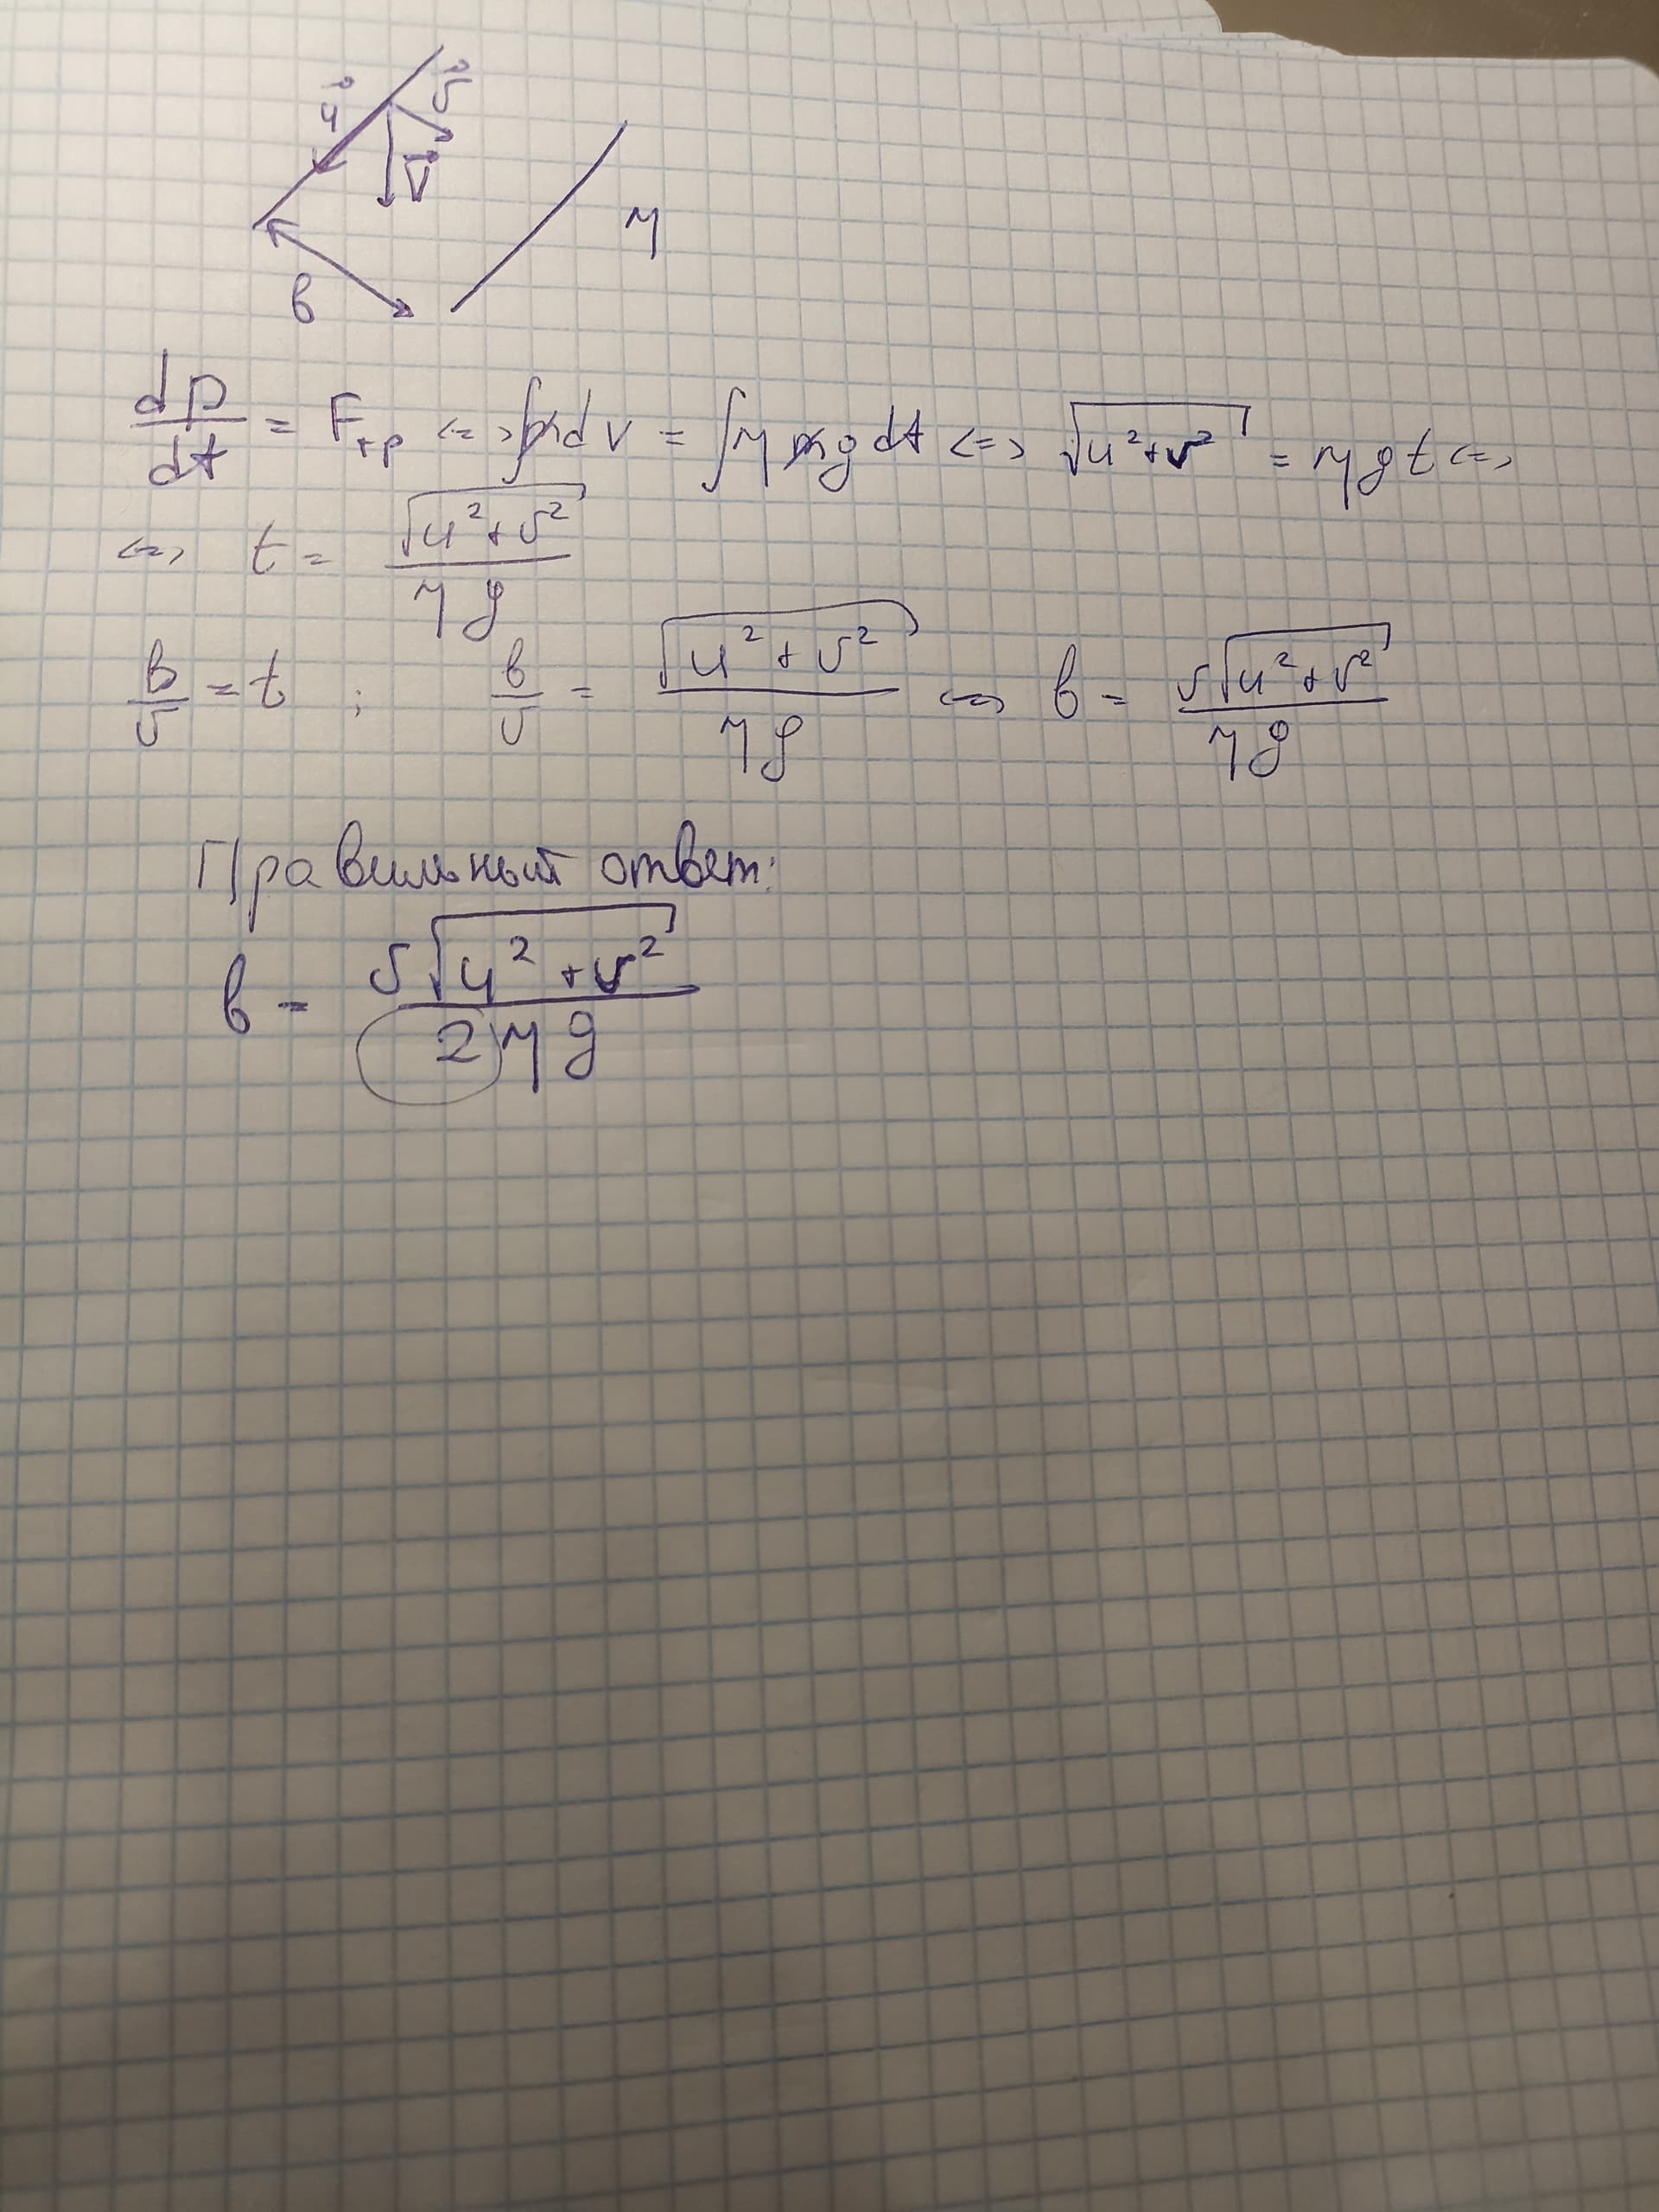 u⃗ v⃗
V⃗
μ
b
dp/dt = Fтр <=> ∫mdv = ∫μmgdt <=> √(u²+v²) = μgt <=>
<=> t = √(u²+v²)/μg
b/v = t ; b/v = √(u²+v²)/μg <=> b = v√(u²+v²)/μg
Правильный ответ:
b = v√(u²+v²)/2μg